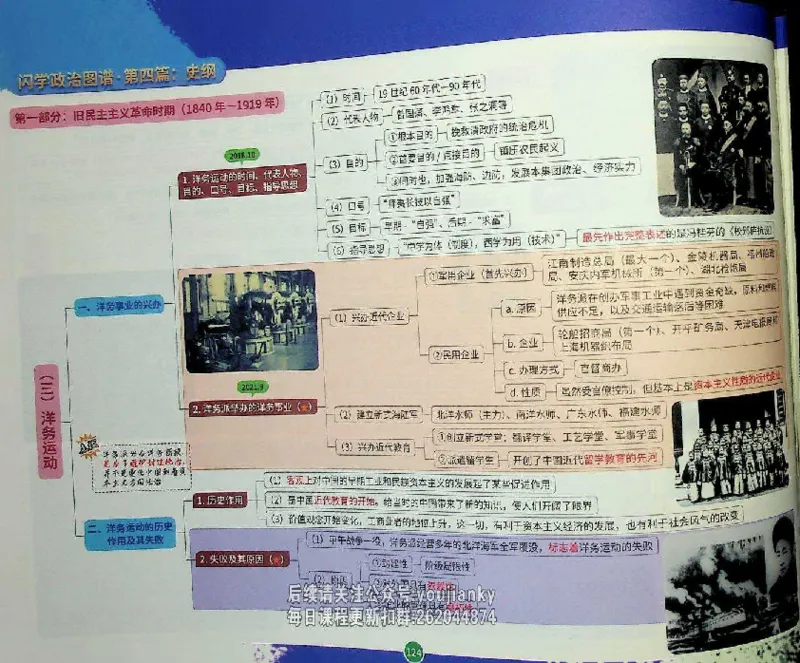 闪学政治图谱·第四篇：史纲
第一部分：旧民主主义革命时期（1840年－1919年）
（三）洋务运动
一、洋务事业的兴办
2018.10
1. 洋务运动的时间、代表人物、
目的、口号、目标、指导思想
（1）时间
19世纪60年代－90年代
（2）代表人物
曾国藩、李鸿章、张之洞等
（3）目的
①根本目的
挽救清政府的统治危机
②首要目的/直接目的
镇压农民起义
③同时也，加强海防、边防，发展本集团政治、经济实力
（4）口号
“师夷长技以自强”
（5）目标
早期－“自强”、后期－“求富”
（6）指导思想
“中学为体（制度），西学为用（技术）”
最先作出完整表述的是冯桂芬的《校邠庐抗议》
2021.4
2. 洋务派举办的洋务事业（★）
（1）兴办近代企业
①军用企业（首先兴办）
江南制造总局（最大一个）、金陵机器局、福州船政
局、安庆内军械所（第一个）、湖北枪炮局
②民用企业
a. 原因
洋务派在创办军事工业中遇到资金奇缺，原料和燃料
供应不足，以及交通运输落后等困难
b. 企业
轮船招商局（第一个）、开平矿务局、天津电报局
上海机器织布局
c. 办理方式
官督商办
d. 性质
虽然受官僚控制，但基本上是资本主义性质的近代企业
（2）建立新式海陆军
北洋水师（主力）、南洋水师、广东水师、福建水师
（3）兴办近代教育
①创立新式学堂：翻译学堂、工艺学堂、军事学堂
②派遣留学生
开创了中国近代留学教育的先河
二、洋务运动的历史
作用及其失败
1. 历史作用
（1）客观上对中国的早期工业和民族资本主义的发展起了某些促进作用
（2）是中国近代教育的开始，给当时的中国带来了新的知识，使人们开阔了眼界
（3）价值观念开始变化，工商业者的地位上升，这一切，有利于资本主义经济的发展，也有利于社会风气的改变
2. 失败及其原因（★）
（1）甲午战争一役，洋务派经营多年的北洋海军全军覆没，标志着洋务运动的失败
（2）原因
①封建性
阶级局限性
后续请关注公众号:youjianky
每日课程更新扣群:262044874
124